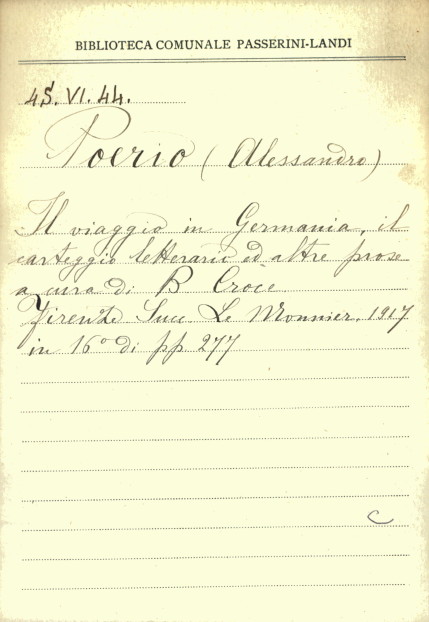 BIBLIOTECA COMUNALE PASSERINI-LANDI
45.VI.44.
Poerio (Alessandro)
Il viaggio in Germania, il
carteggio letterario ed altre prose
a cura di B Croce
Firenze Succ Le Monnier, 1917
in 16° di pp 277
C